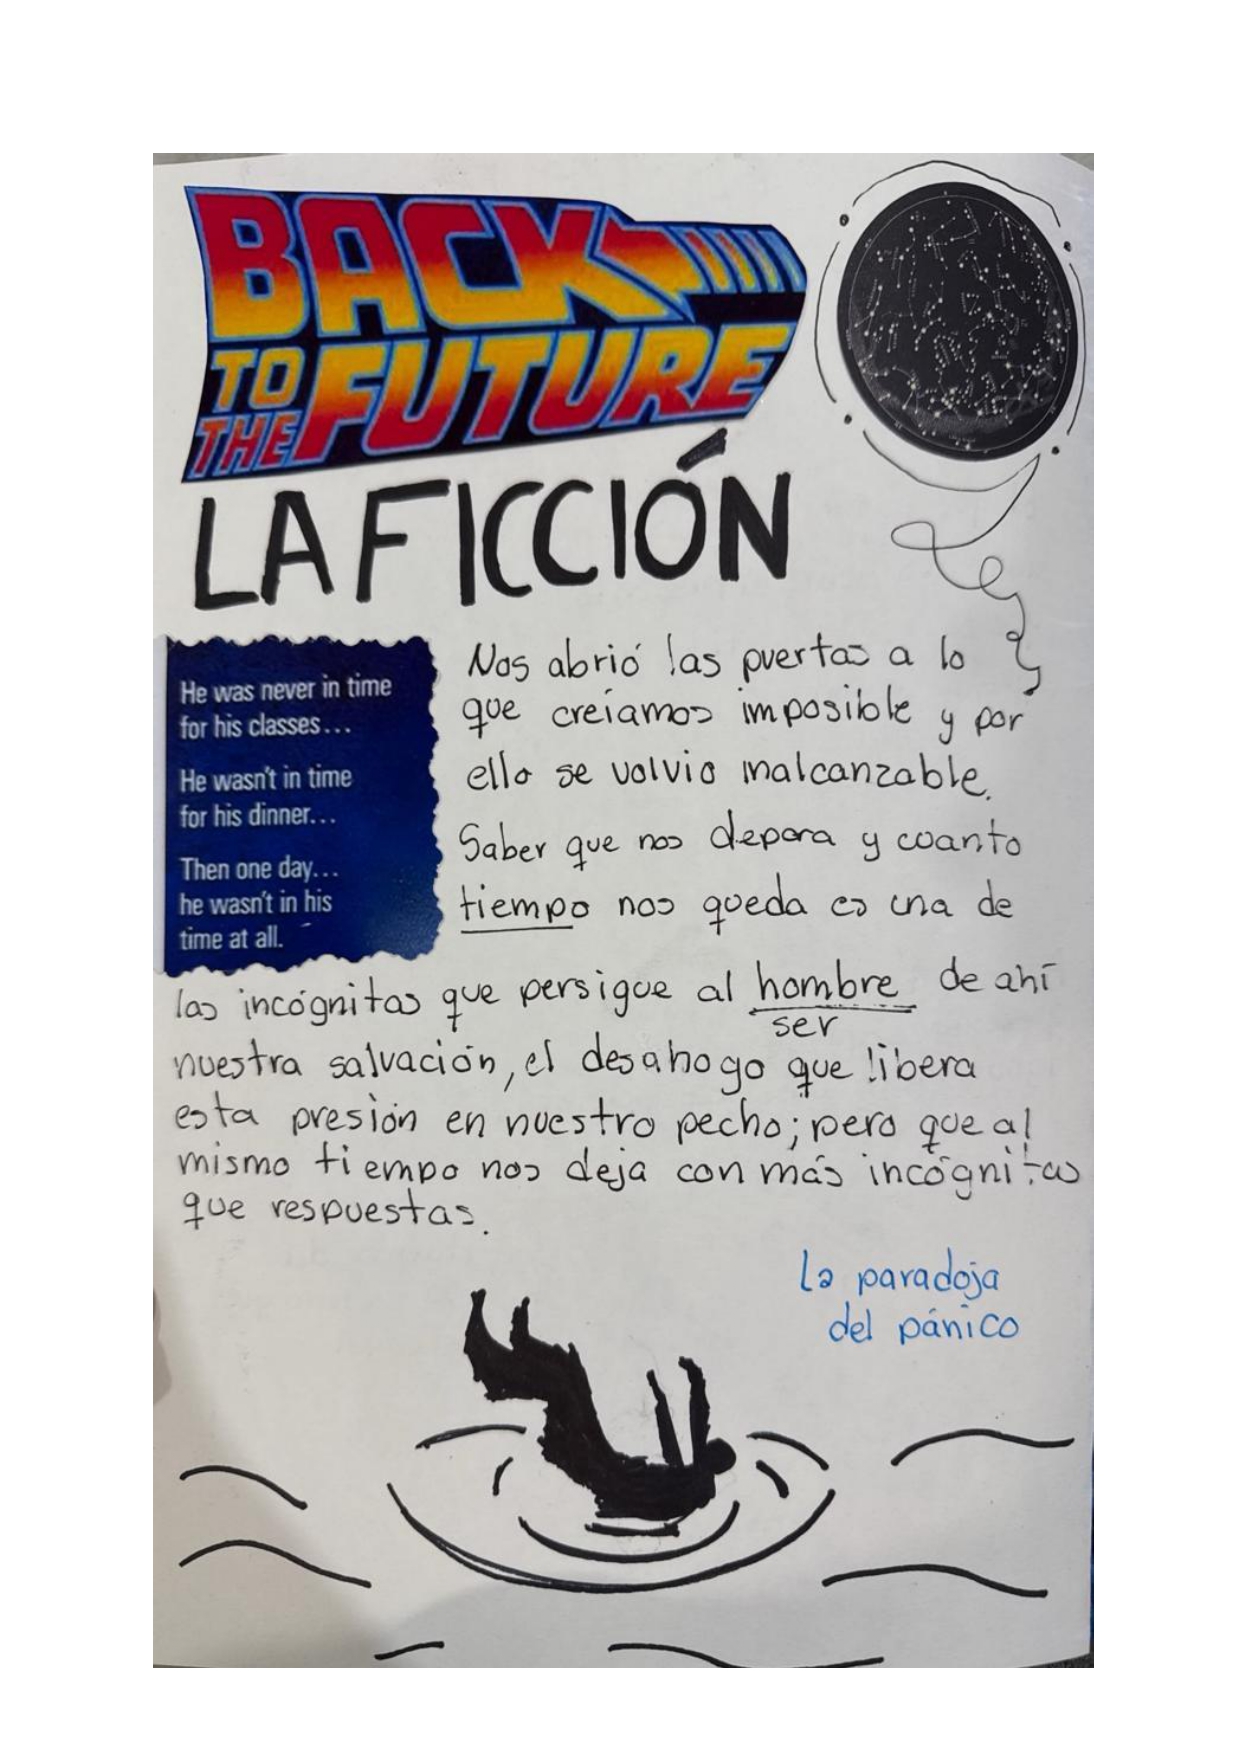 BACK
TO THE FUTURE
LA FICCIÓN
He was never in time
for his classes...
He wasn't in time
for his dinner...
Then one day...
he wasn't in his
time at all.
Nos abrió las puertas a lo
que creíamos imposible y por
ello se volvio inalcanzable.
Saber que nos depara y cuanto
tiempo nos queda es una de
las incógnitas que persigue al hombre de ahí
ser
nuestra salvación, el desahogo que libera
esta presión en nuestro pecho; pero que al
mismo tiempo nos deja con más incógnitas
que respuestas.
La paradoja
del pánico